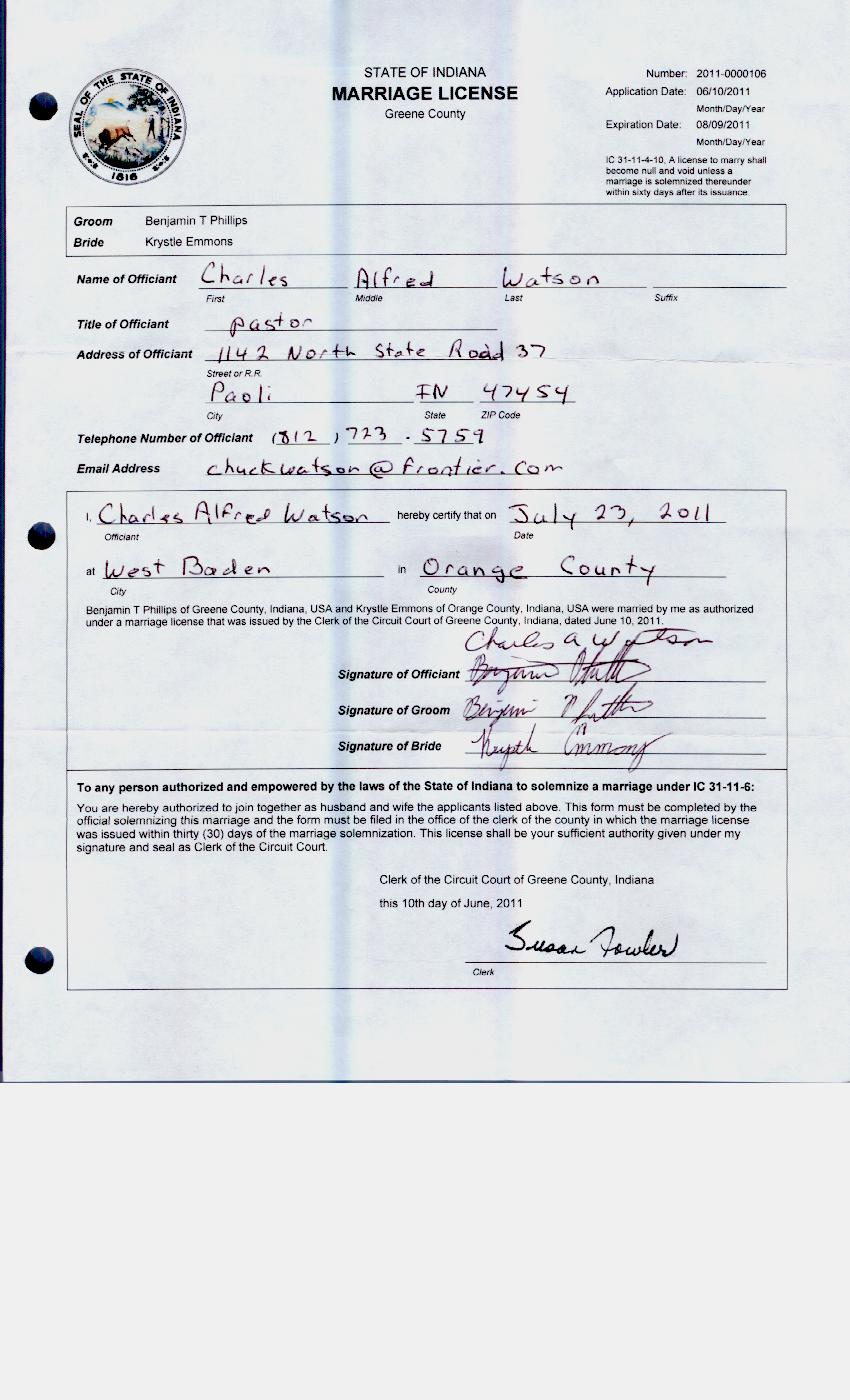 SEAL OF THE STATE OF INDIANA
1816
STATE OF INDIANA
MARRIAGE LICENSE
Greene County
Number: 2011-0000106
Application Date: 06/10/2011
Month/Day/Year
Expiration Date: 08/09/2011
Month/Day/Year
IC 31-11-4-10, A license to marry shall
become null and void unless a
marriage is solemnized thereunder
within sixty days after its issuance.
Groom Benjamin T Phillips
Bride Krystle Emmons
Name of Officiant Charles Alfred Watson
First Middle Last Suffix
Title of Officiant pastor
Address of Officiant 1142 North State Road 37
Street or R.R.
Paoli IN 47454
City State ZIP Code
Telephone Number of Officiant (812) 723 - 5759
Email Address chuckwatson@frontier.com
I, Charles Alfred Watson hereby certify that on July 23, 2011
Officiant Date
at West Baden in Orange County
City County
Benjamin T Phillips of Greene County, Indiana, USA and Krystle Emmons of Orange County, Indiana, USA were married by me as authorized
under a marriage license that was issued by the Clerk of the Circuit Court of Greene County, Indiana, dated June 10, 2011.
Charles A Watson
Signature of Officiant
Signature of Groom
Signature of Bride
To any person authorized and empowered by the laws of the State of Indiana to solemnize a marriage under IC 31-11-6:
You are hereby authorized to join together as husband and wife the applicants listed above. This form must be completed by the
official solemnizing this marriage and the form must be filed in the office of the clerk of the county in which the marriage license
was issued within thirty (30) days of the marriage solemnization. This license shall be your sufficient authority given under my
signature and seal as Clerk of the Circuit Court.
Clerk of the Circuit Court of Greene County, Indiana
this 10th day of June, 2011
Susan Fowler
Clerk